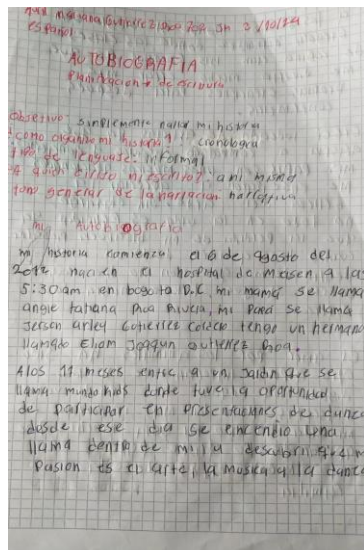 español
AUTOBIOGRAFIA
Planificacion de escritura
objetivo: simplemente narrar mi historia
¿como organizo mi historia? cronologia
tipo de lenguaje: informal
A quien dirijo mi escrito? a mi misma
tono general de la narracion narrativa
mi Autobiografia
mi historia comienza el 6 de agosto del
2012 naci en el hospital de Meisen a las
5:30 am en bogota D.C mi mama se llama
angie tatiana Roa Rivera, mi Papá se llama
Jerson arley Gutierrez tengo un hermano
llamado Gutierrez Roa.
A los 11 meses entre a un Jardin que se
llama mundo kids donde tuve la oportunidad
de participar en presentaciones de danza
desde ese dia se encendio una
llama dentro de mi y descubri que mi
Pasion es el arte, la musica y la danza